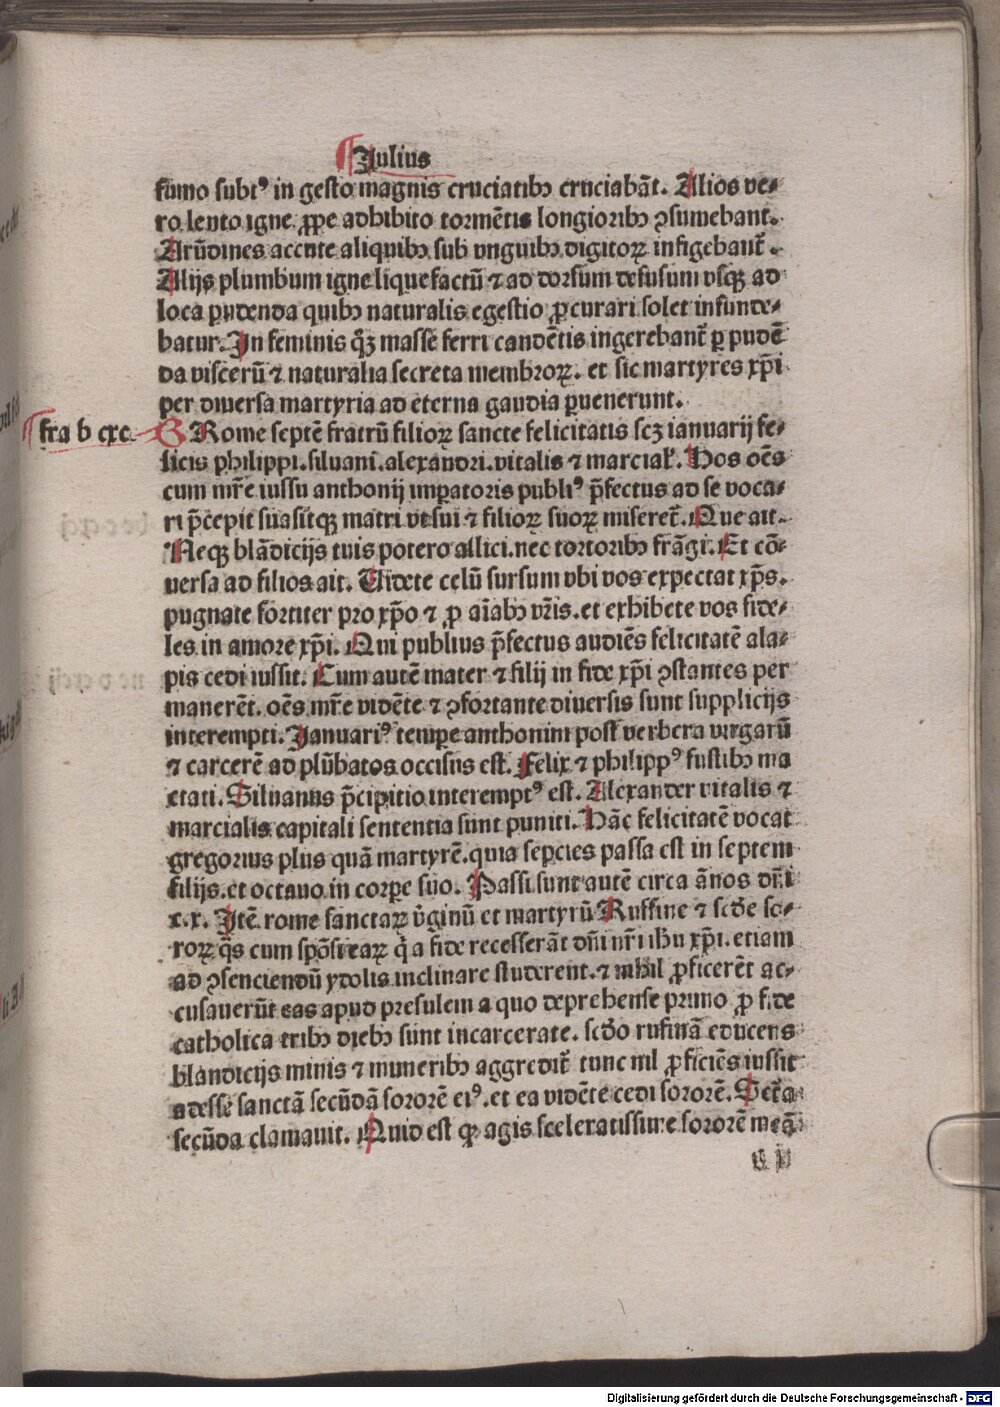 Julius
fumo subtꝰ in gesto magnis cruciatibꝫ cruciabāt. Alios ve⸗
ro lento igne ꝓpe adhibito tormētis longioribꝫ ꝯsumebant.
Arūdines accute aliquibꝫ sub vnguibꝫ digitoꝝ infigebant̄.
Alijs plumbum igne liquefactū ⁊ ad dorsum defusum vsqꝫ ad
loca pudenda quibꝫ naturalis egestio ꝓcurari solet infunde⸗
batur. In feminis qꝫ̄ masse ferri candētis ingerebant̄ ꝑ pudē
da viscerū ⁊ naturalia secreta membroꝝ. et sic martyres xp̄i
per diuersa martyria ad eterna gaudia ꝑuenerunt.
fra b cxc. G Rome septē fratrū filioꝝ sancte felicitatis scꝫ ianuarij fe⸗
licis philippi.siluani.alexandri.vitalis ⁊ marcial̓. Hos oēs
cum mr̄e iussu anthonij imꝑatoris publiꝰ p̄fectus ad se voca⸗
ri p̄cepit suasitqꝫ matri vt sui ⁊ filioꝝ suoꝝ miseret̄. Que ait.
Neqꝫ blādicijs tuis potero allici.nec tortoribꝫ frāgi. Et cō⸗
uersa ad filios ait. Uidete celū sursum vbi vos expectat xp̄s.
pugnate fortiter pro xp̄o ⁊ ꝓ aīabꝫ vr̄is.et exhibete vos fide⸗
les in amore xp̄i. Qui publius p̄fectus audiēs felicitatē ala⸗
pis cedi iussit. Cum autē mater ⁊ filij in fide xp̄i ꝯstantes per
manerēt. oēs mr̄e vidēte ⁊ ꝯfortante diuersis sunt supplicijs
interempti. Januariꝰ tempe anthonini post verbera virgarū
⁊ carcerē ad plūbatos occisus est. Felix ⁊ philippꝰ fustibꝫ ma
ctati. Siluanus p̄cipitio interemptꝰ est. Alexander vitalis ⁊
marcialis capitali sententia sunt puniti. Hāc felicitatē vocat
gregorius plus quā martyrē.quia sepcies passa est in septem
filijs.et octauo in corpe suo. Passi sunt autē circa ānos dn̄i
c.x. Itē rome sanctaꝝ v̄ginū et martyrū Ruffine ⁊ scd̄e so⸗
roꝝ q̄s cum spōsi eaꝝ q̄ a fide recesserāt dn̄i nr̄i ihu xp̄i. etiam
ad ꝯsenciendū ydolis inclinare studerent.⁊ nihil ꝓficerēt ac⸗
cusauerūt eas apud presulem a quo deprehense primo ꝓ fide
catholica tribꝫ diebꝫ sunt incarcerate. scd̄o rufinā educens
blandicijs minis ⁊ muneribꝫ aggredit̄ tunc nil ꝓficiēs iussit
adesse sanctā secūdā sororē eiꝰ.et ea vidēte cedi sororē. Sct̄a
secūda clamauit. Quid est qꝛ agis sceleratissime sororē meā